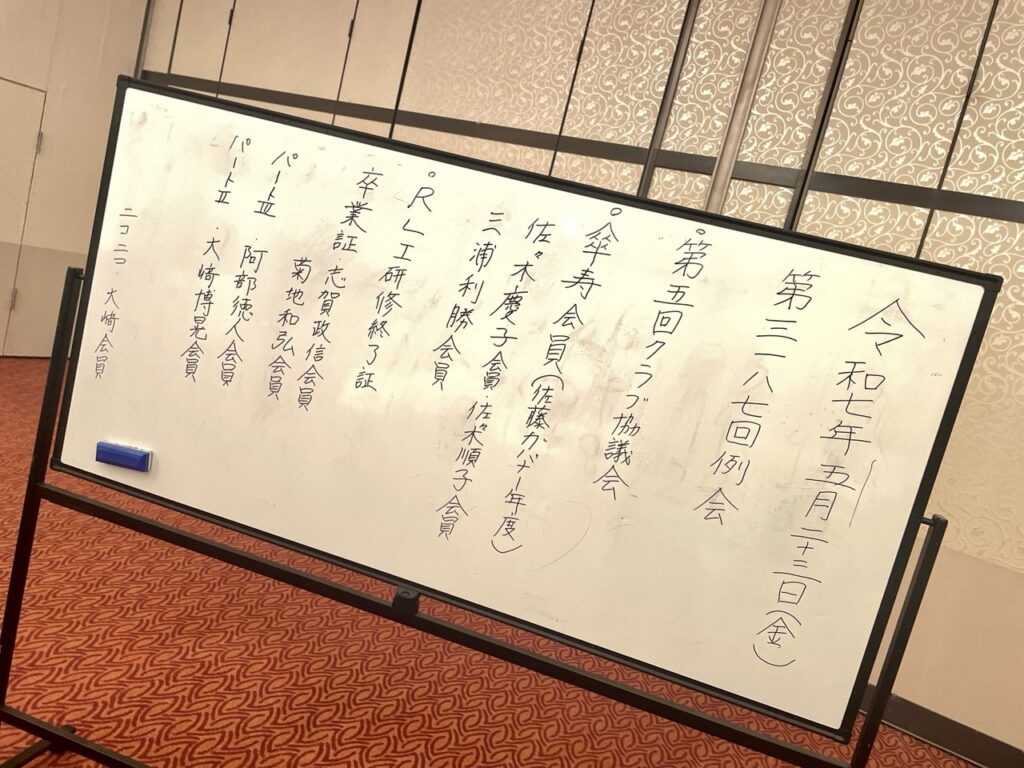 令和七年五月二十三日(金)
第三一八七回例会
。第五回クラブ協議会
。傘寿会員(佐藤ガバナー年度)
佐々木慶子会員・佐々木順子会員
三浦利勝会員
。RLI研修終了証
卒業証・志賀政信会員
菊地和弘会員
パートⅢ 阿部徳人会員
パートⅡ・大﨑博晃会員
ニコニコ・大﨑会員